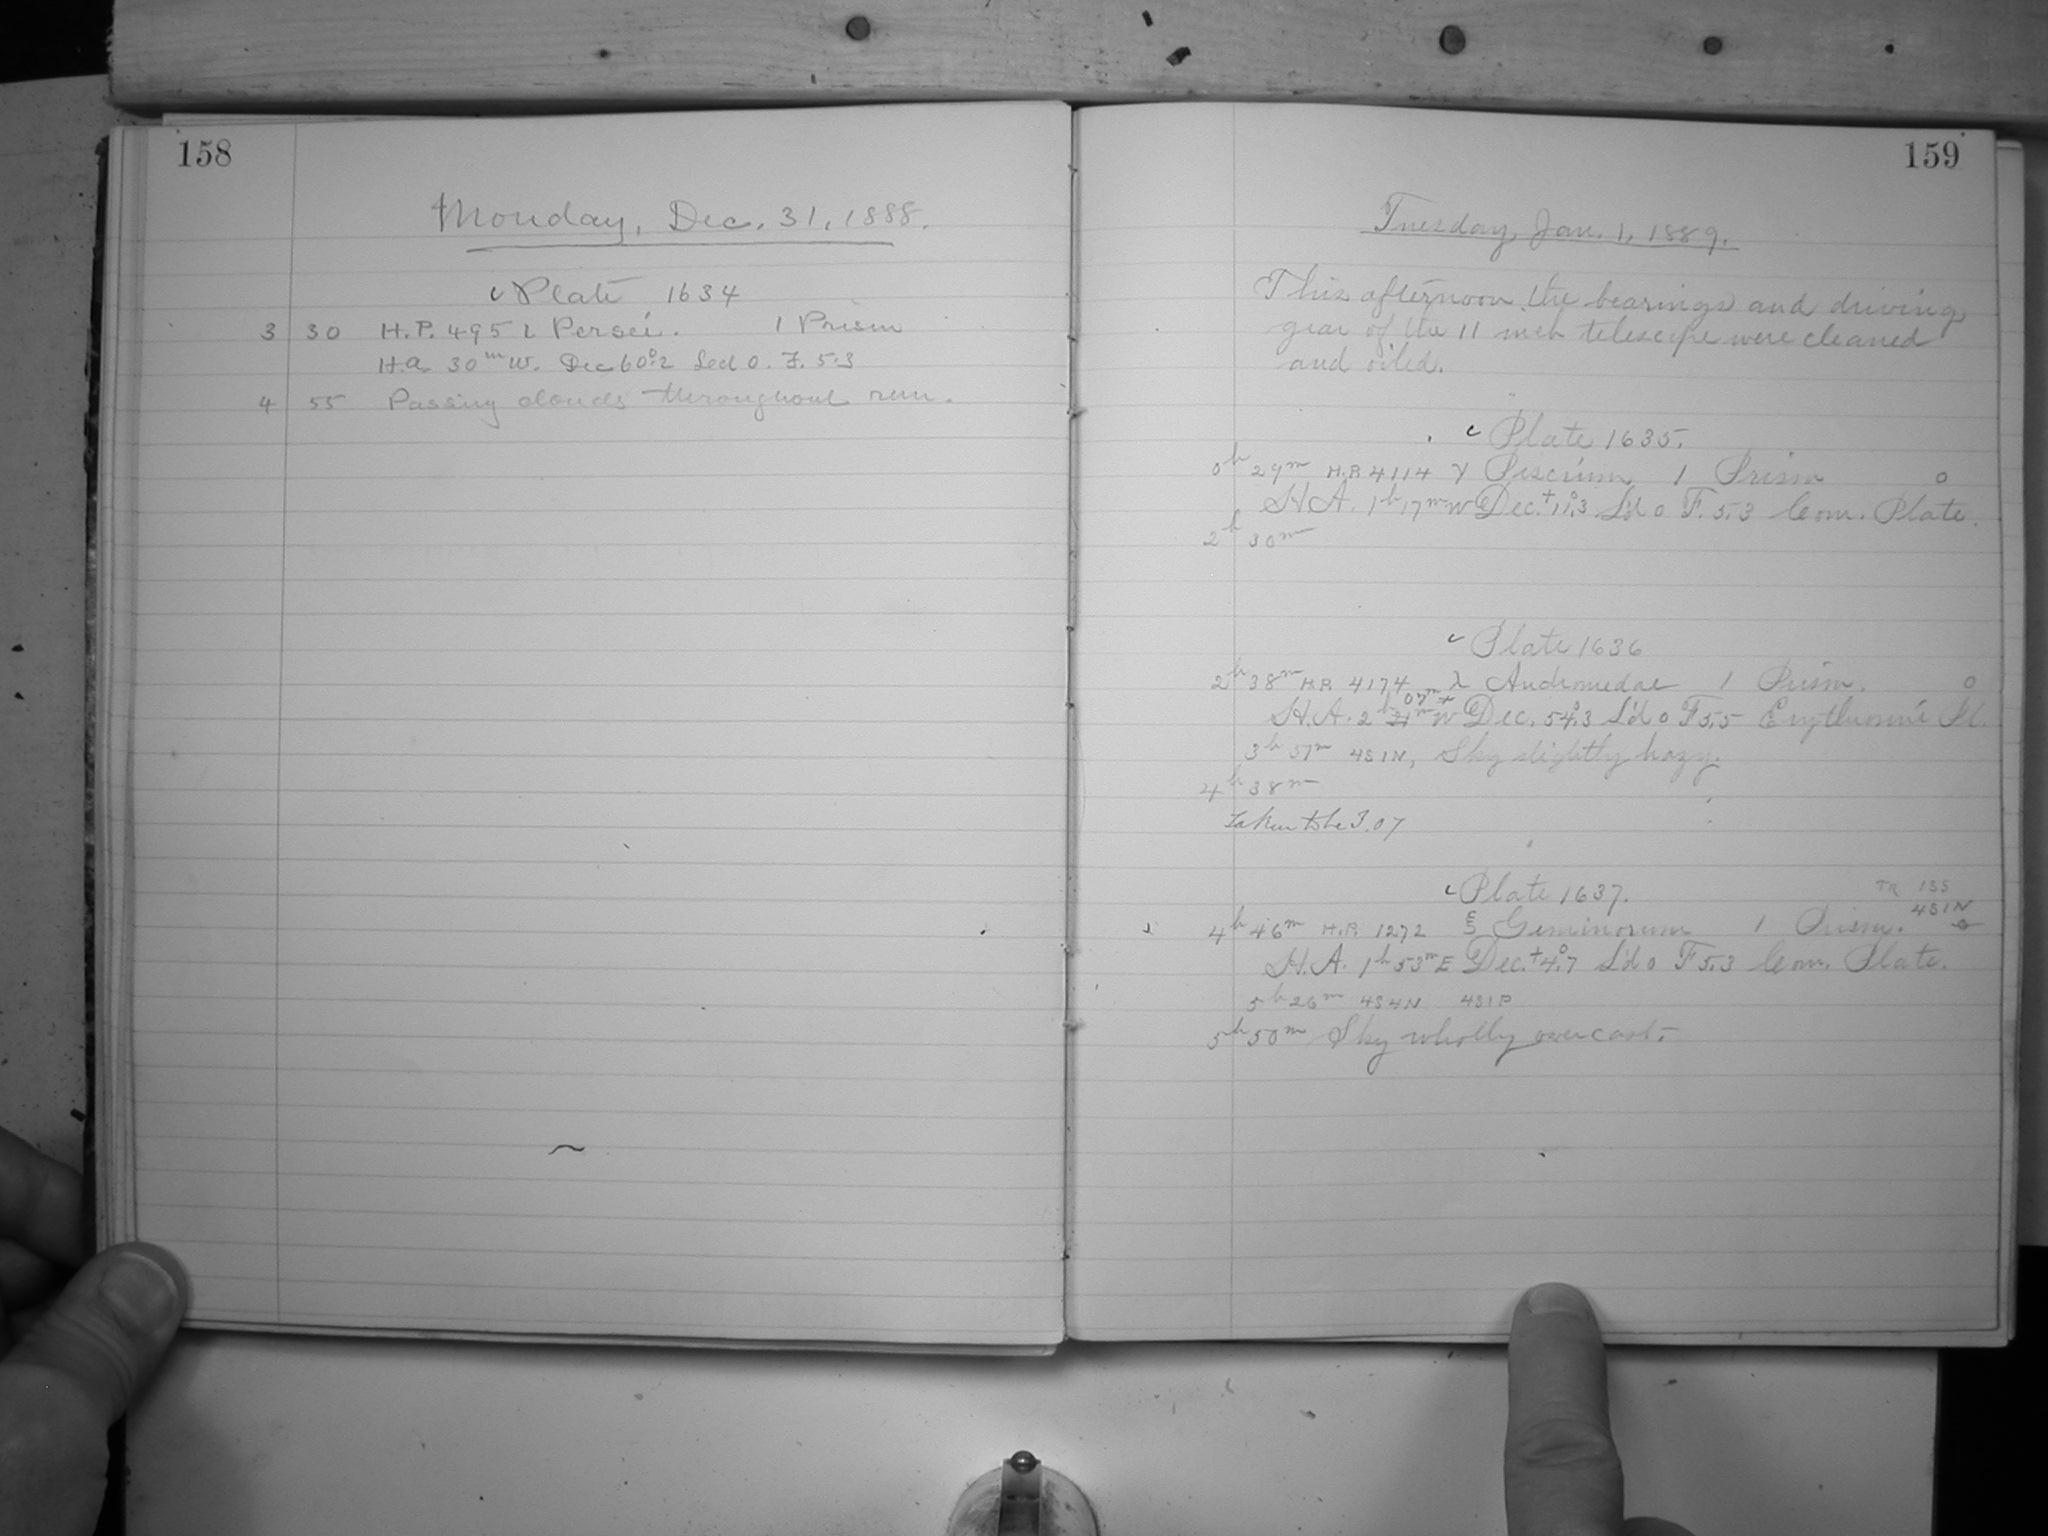 158
Monday, Dec. 31, 1888.
c Plate 1634
3 30 H.P. 495 ι Persei. 1 Prism
H.a. 30m W. Dec 60°.2 Led 0. F. 5.3
4 55 Passing clouds throughout run.
159
Tuesday, Jan. 1, 1889.
This afternoon the bearings and driving
gear of the 11 inch telescope were cleaned
and oiled.
c Plate 1635.
0h 29m H.P. 4114 γ Piscium 1 Prism 0
H.A. 1h 17m W Dec. +11°.3 L'd 0 F. 5.3 Com. Plate.
2h 30m
c Plate 1636
2h 38m H.P. 4174 λ Andromedae 1 Prism. 0
07m
H.A. 2h W Dec. +54°.3 L'd 0 F 5.5 Erythrosine Pl.
3h 37m 4S1N, Sky slightly hazy.
4h 38m
Taken to be 3.07
c Plate 1637.
TR 135
4S1N
4h 46m H.P. 1272 ξ Geminorum 1 Prism. 0
H.A. 1h 53m E Dec. +4°.7 L'd 0 F 5.3 Com. Plate.
5h 26m 4S4N 4S1P
5h 50m Sky wholly overcast.